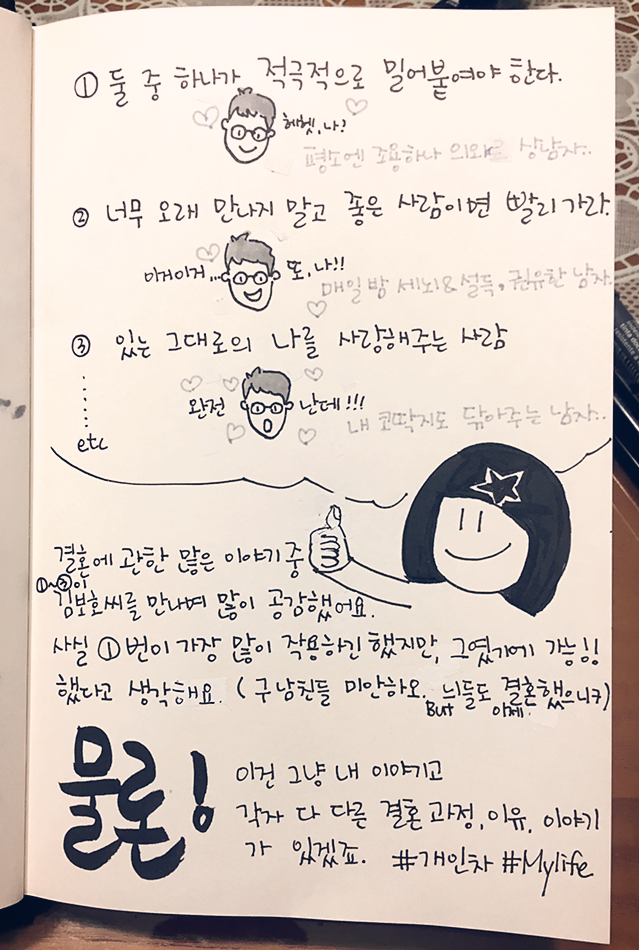 ① 둘 중 하나가 적극적으로 밀어붙여야 한다.
헤헷, 나?
평소엔 조용하나 의외로 상남자..
② 너무 오래 만나지 말고 좋은 사람이면 빨리 가라.
이거이거... 또, 나!!
매일 밤 세뇌&설득, 권유한 남자.
③ 있는 그대로의 나를 사랑해주는 사람
완전 난데!!!
내 코딱지도 닦아주는 남자..
etc
결혼에 관한 많은 이야기 중
①~③이
김보호씨를 만나며 많이 공감했어요.
사실 ①번이 가장 많이 작용하긴 했지만, 그였기에 가능!!
했다고 생각해요. (구남친들 미안하오. But 늬들도 이제 결혼했으니ㅋ)
물론!
이건 그냥 내 이야기고
각자 다 다른 결혼 과정, 이유, 이야기
가 있겠죠. #개인차 #Mylife